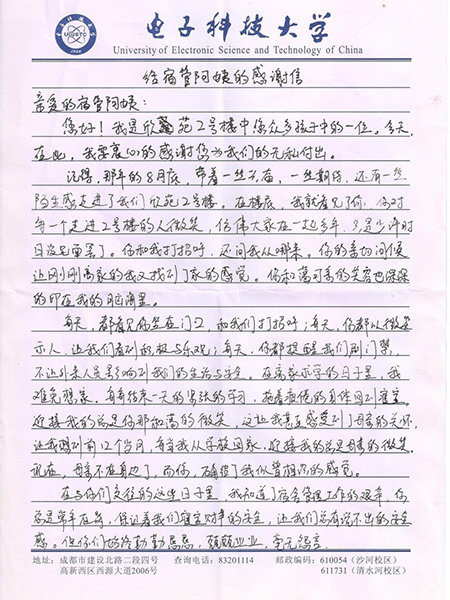 电子科技大学
University of Electronic Science and Technology of China
给宿管阿姨的感谢信
亲爱的宿管阿姨：
您好！我是欣苑2号楼中您众多孩子中的一位。今天
在此，我要衷心的感谢您为我们的无私付出。
记得，那年的8月底，带着一丝不苟，一丝期待，还有一丝
陌生感走进了我们欣苑2号楼。在楼底，我就看见了你，你对
每一个走进2号楼的人微笑，
日没见面罢了。你和我打招呼，还问我从哪来，你的亲切问候
让刚刚离家的我又找到了家的感觉。你和蔼可亲的笑容也深深
的印在我的脑海里。
每天，都看见你坐在门口，和我们打招呼；每天，你都以微笑
示人，让我们看到积极与乐观；每天，你都提醒我们刷门禁，
不让外来人员影响到我们的生活与安全。在离家求学的日子里，我
难免想家。每每结束一天的紧张的学习，拖着疲倦的身体回到寝室，
迎接我的总是你那和蔼的微笑，这让我真正感受到了母亲的关怀
让我想到前12个月，每当我从学校回家，迎接我的总是母亲的微笑。
现在，母亲不在身边了，而你，却给了我似曾相识的感觉。
在与你们交往的这些日子里，我知道了宿舍管理工作的艰辛，你
总是常年在岗，保证着我们寝室财产的安全，让我们总有说不出的安全
感。但你们始终勤勤恳恳，兢兢业业，毫无怨言。
地址：成都市建设北路二段四号 查询电话：83201114 邮政编码：610054（沙河校区）
高新西区西源大道2006号 611731（清水河校区）